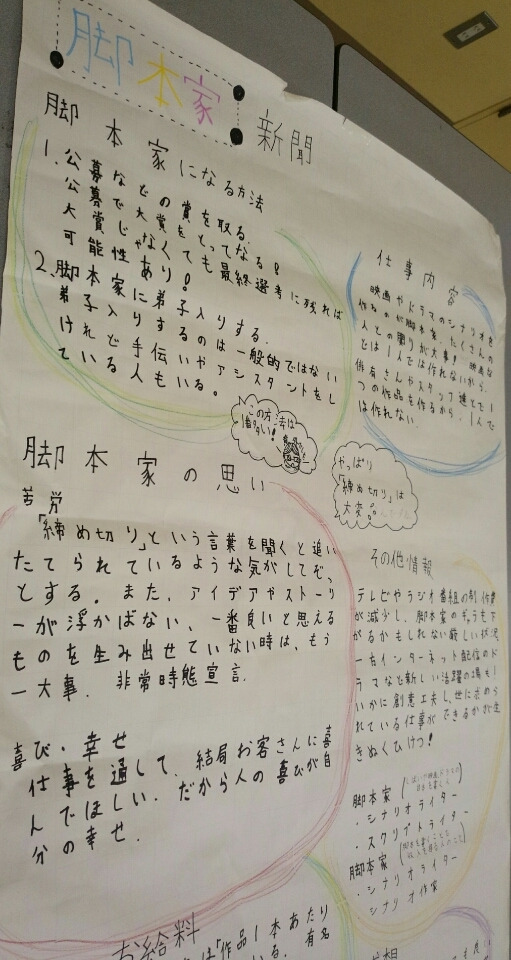 脚本家新聞
脚本家になる方法
1.公募などの賞を取る。
公募で大賞をとってなる!
大賞じゃなくても最終選考に残れば
可能性あり!
2、脚本家に弟子入りする.
弟子入りするのは一般的ではない
けれど手伝いやアシスタントをし
ている人もいる。
この方法は
1番多い!
仕事内容
映画やドラマのシナリオを
作るのが脚本家。たくさんの
人との関りが大事!映画な
どは1人では作れないから、
俳有さんやスタッフ達とで1
つの作品を作るから、1人で
は作れない
やっぱり
「締め切り」は
大変。。
脚本家の思い
苦労
「締め切り」という言葉を聞くと追い
たてられているような気がしてぞっ
とする. また、アイデアやストーリ
ーが浮かばない、一番良いと思える
ものを生み出せていない時は、もう
一大事. 非常時態宣言.
喜び・幸せ
仕事を通して、結局お客さんに喜
んでほしい. だから人の喜びが自
分の幸せ.
その他情報
テレビやラジオ番組の制作費
が減少し、脚本家のギャラも下
がるかもしれない厳しい状況
一方インターネット配信のド
ラマなど新しい活躍の場も!
いかに創意工夫し、世に求めら
れている仕事ができるかが生
きぬくひけつ!
脚本家
・シナリオライター
・スクリプトライター
脚本家
・シナリオライター
シナリオ作家
お給料
は「作品1本あたり
いる. 有名